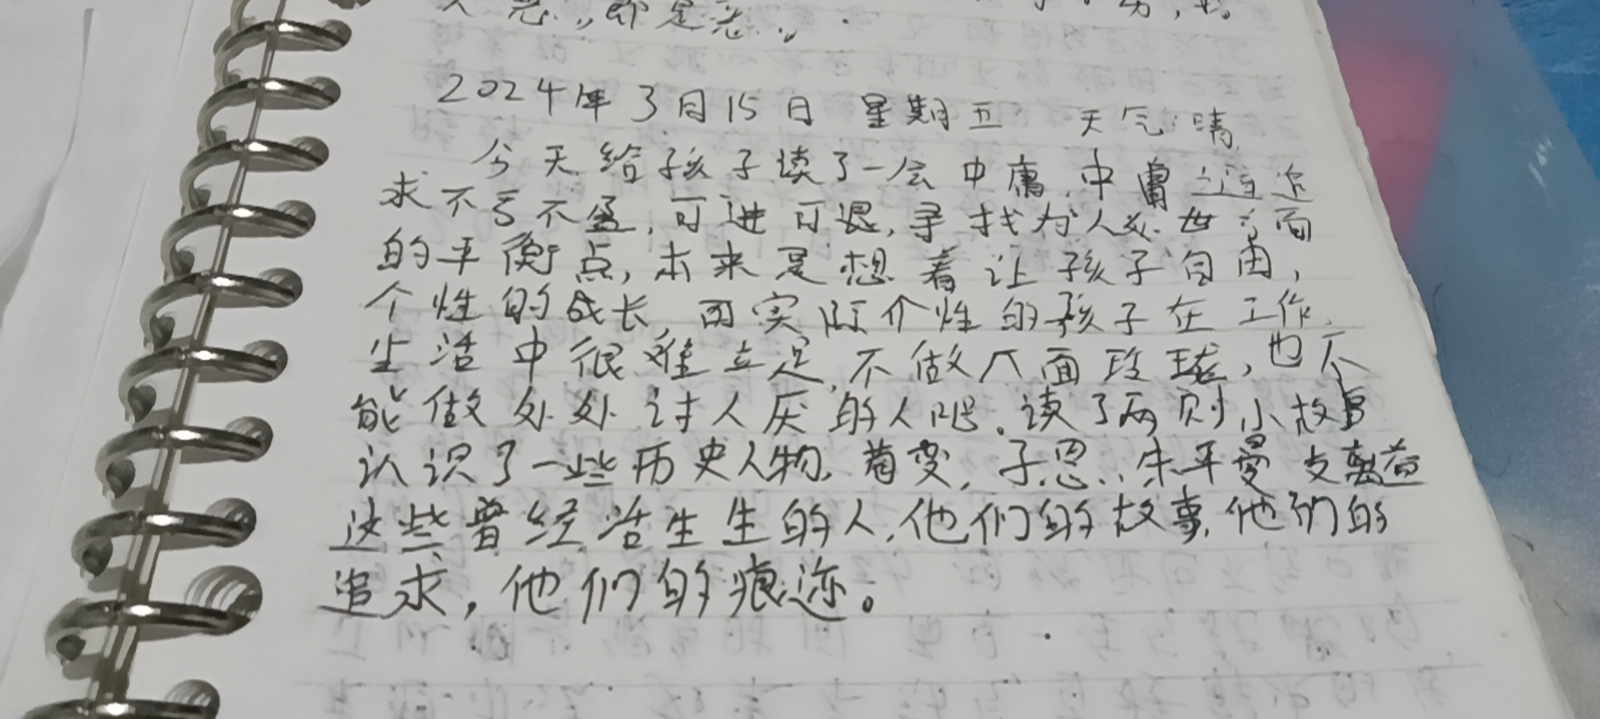 恶,即是恶。
2024年3月15日 星期五 天气晴
今天给孩子读了一会中庸,中庸之道追
求不亏不盈,可进可退,寻找为人处世方面
的平衡点,本来是想着让孩子自由,
个性的成长,而实际个性的孩子在工作、
生活中很难立足,不做八面玲珑,也不
能做处处讨人厌的人吧。读了两则小故事
认识了一些历史人物,荀变,子思,朱平曼,支离益
这些曾经活生生的人,他们的故事,他们的
追求,他们的痕迹。